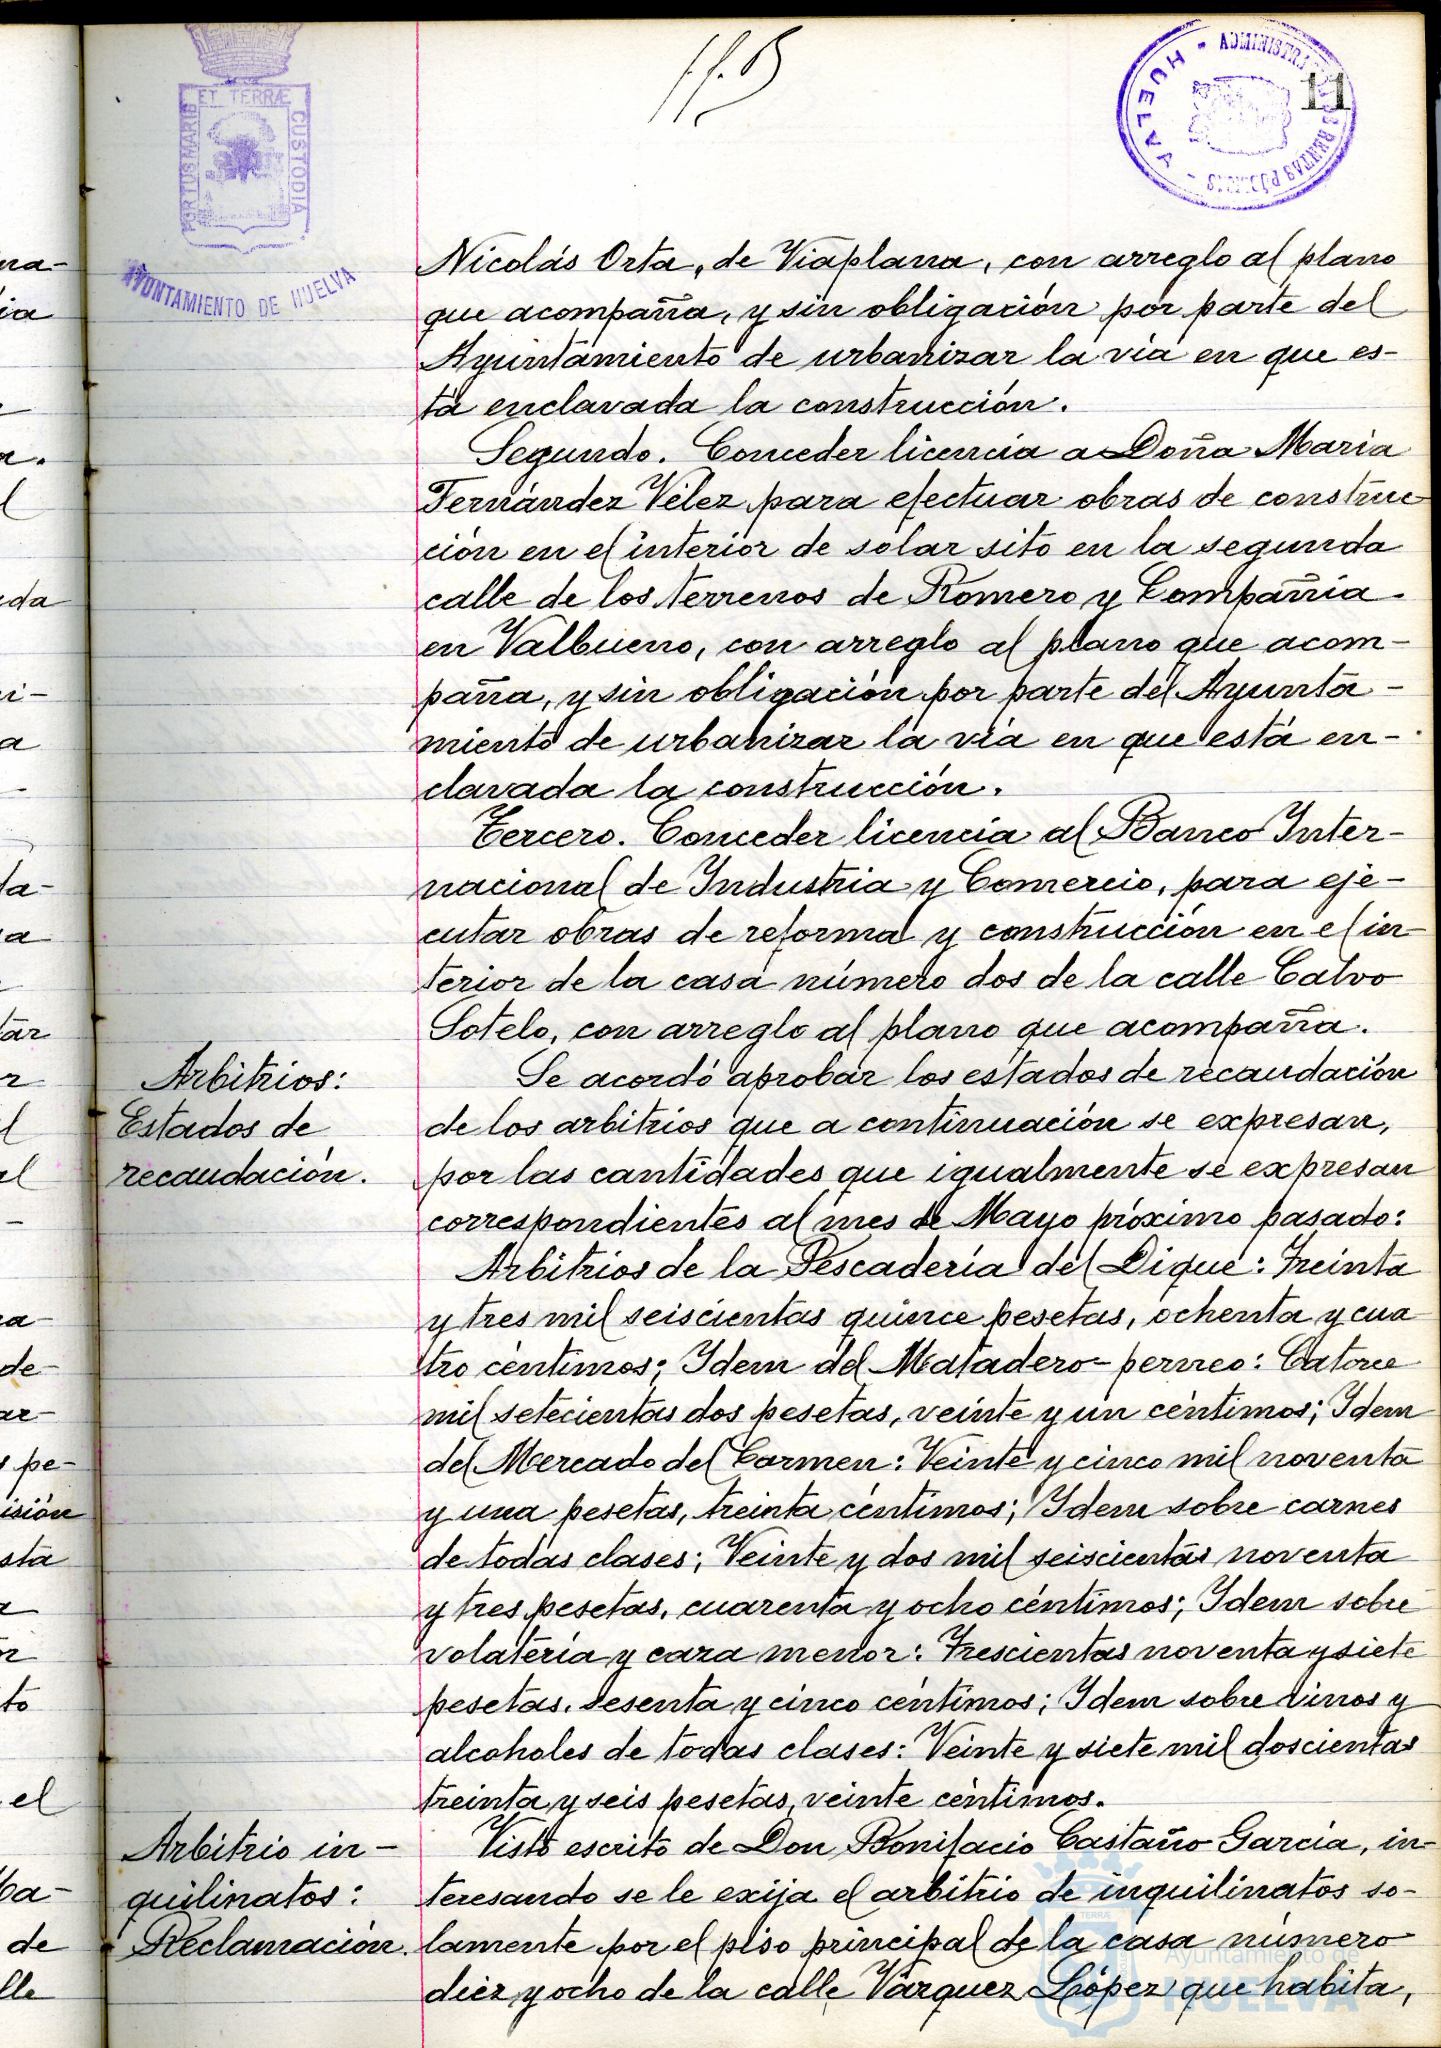 PORTUS MARIS ET TERRÆ CUSTODIA
AYUNTAMIENTO DE HUELVA
ADMINISTRACION DE RENTAS PÚBLICAS - HUELVA -
11
Nicolás Orta, de Viaplana, con arreglo al plano
que acompaña, y sin obligación por parte del
Ayuntamiento de urbanizar la vía en que es-
tá enclavada la construcción.
Segundo. Conceder licencia a Doña María
Fernández Vélez para efectuar obras de construc
ción en el interior de solar sito en la segunda
calle de los terrenos de Romero y Compañía
en Valbueno, con arreglo al plano que acom-
paña, y sin obligación por parte del Ayunta-
miento de urbanizar la vía en que está en-
clavada la construcción.
Tercero. Conceder licencia al Banco Inter-
nacional de Industria y Comercio, para eje-
cutar obras de reforma y construcción en el in-
terior de la casa número dos de la calle Calvo
Sotelo, con arreglo al plano que acompaña.
Arbitrios:
Estados de
recaudación.
Se acordó aprobar los estados de recaudación
de los arbitrios que a continuación se expresan,
por las cantidades que igualmente se expresan
correspondientes al mes de Mayo próximo pasado:
Arbitrios de la Pescadería del Dique: Treinta
y tres mil seiscientas quince pesetas, ochenta y cua
tro céntimos; Idem del Matadero-perneo: Catorce
mil setecientas dos pesetas, veinte y un céntimos; Idem
del Mercado del Carmen: Veinte y cinco mil noventa
y una pesetas, treinta céntimos; Idem sobre carnes
de todas clases; Veinte y dos mil seiscientas noventa
y tres pesetas, cuarenta y ocho céntimos; Idem sobre
volatería y caza menor: Trescientas noventa y siete
pesetas, sesenta y cinco céntimos; Idem sobre vinos y
alcoholes de todas clases: Veinte y siete mil doscientas
treinta y seis pesetas, veinte céntimos.
Arbitrio in-
quilinatos:
Reclamación.
Visto escrito de Don Bonifacio Castaño García, in-
teresando se le exija el arbitrio de inquilinatos so-
lamente por el piso principal de la casa número
diez y ocho de la calle Vázquez López que habita,
Ayuntamiento de
HUELVA